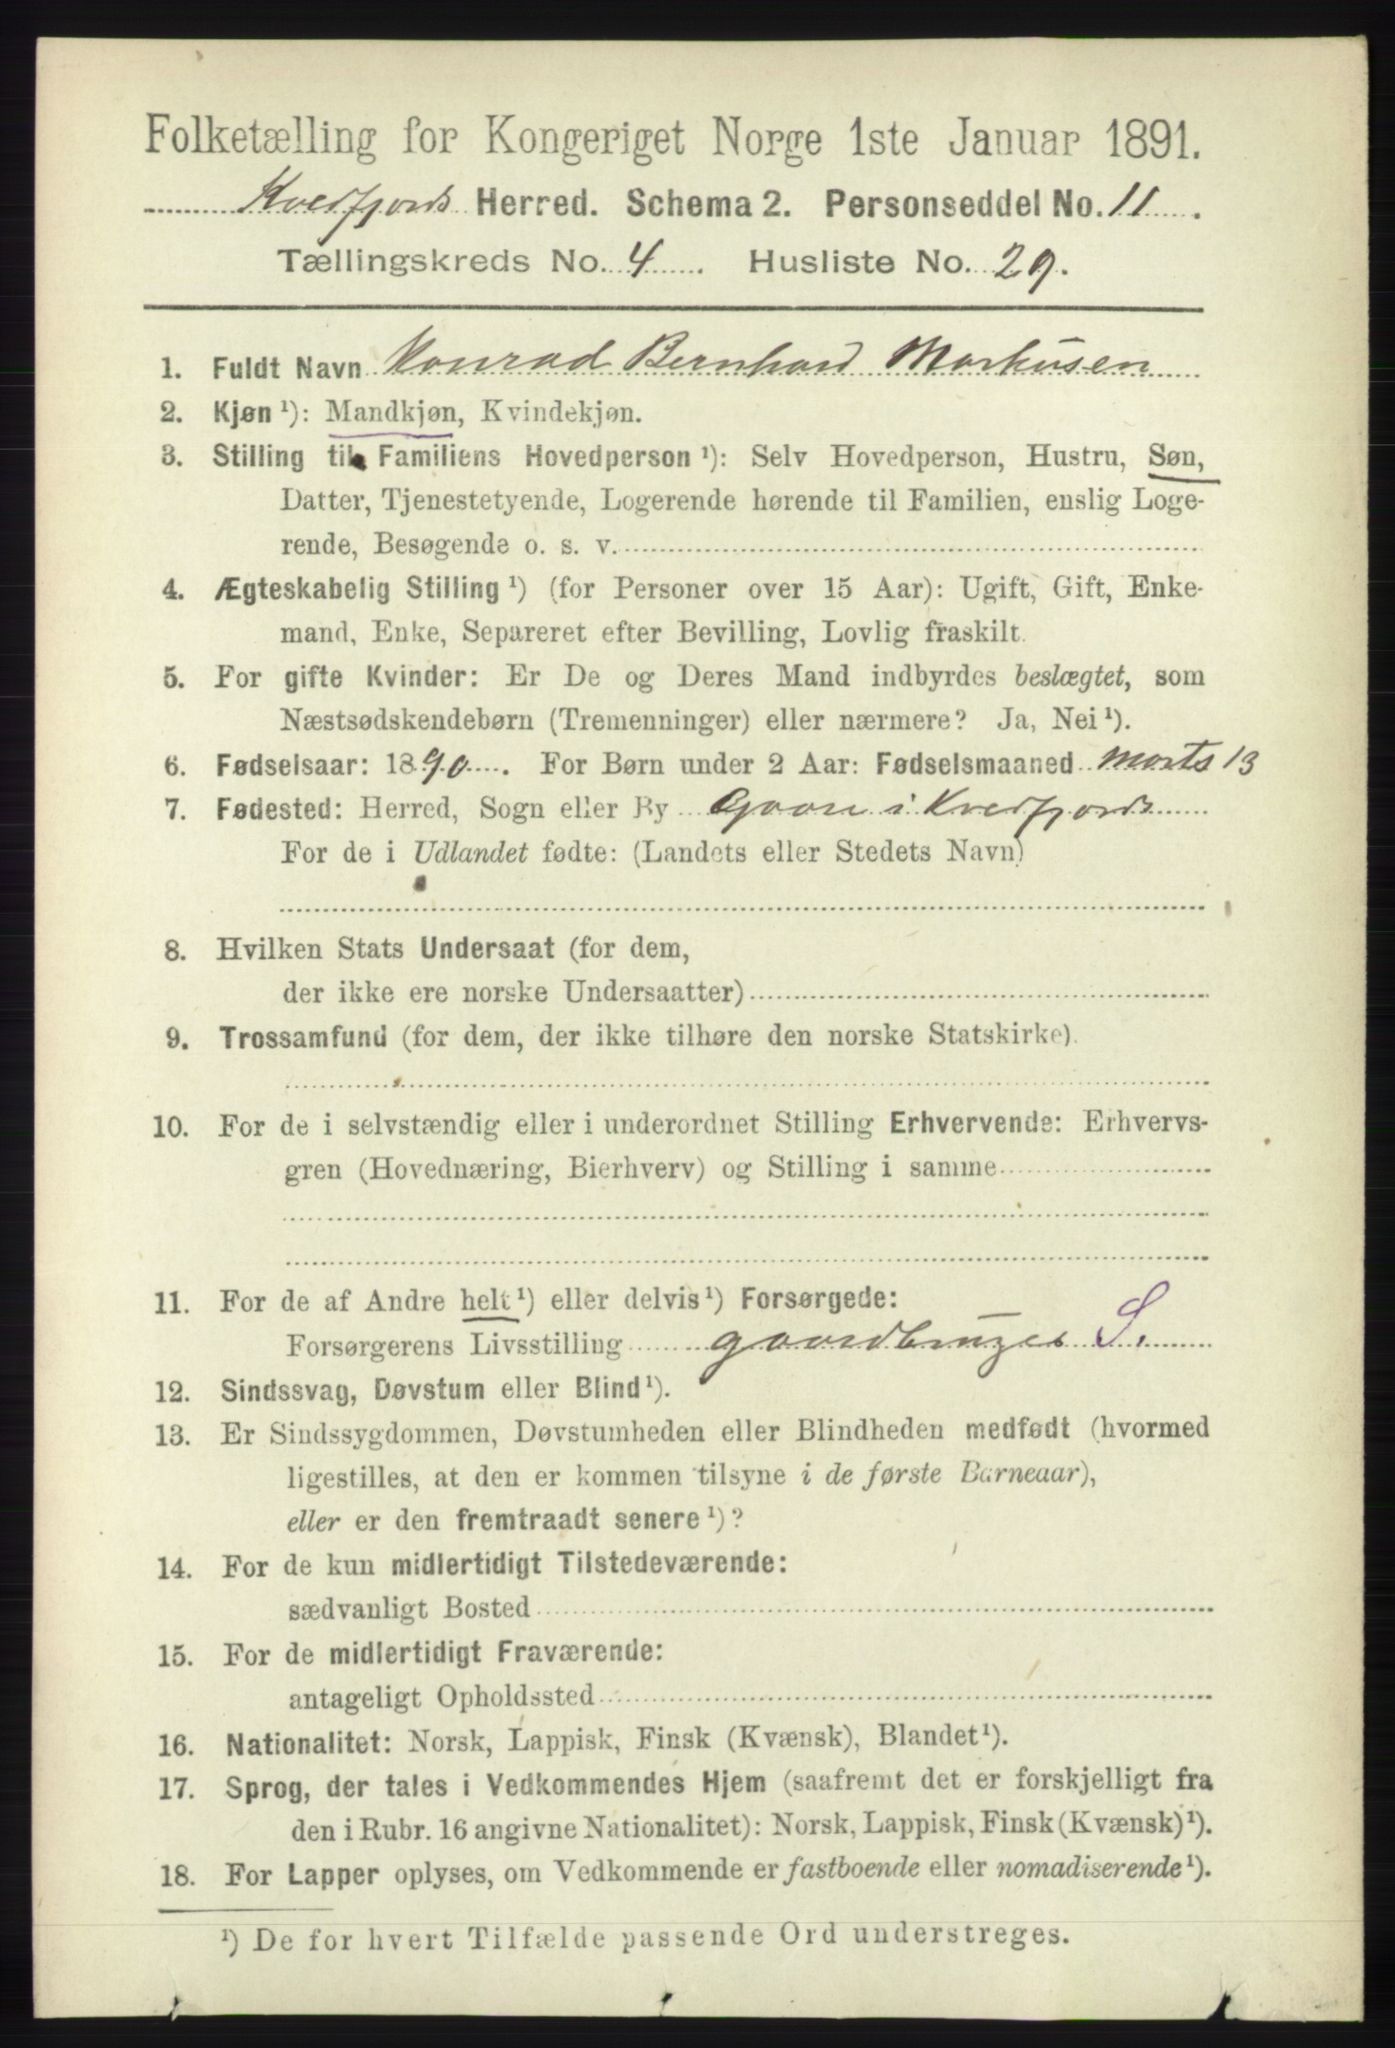 Folketælling for Kongeriget Norge 1ste Januar 1891.
Kvedfjords Herred. Schema 2. Personseddel No. 11.
Tællingskreds No. 4. Husliste No. 29.
1. Fuldt Navn Konrad Bernhard Markusen
2. Kjøn ¹): Mandkjøn, Kvindekjøn.
3. Stilling til Familiens Hovedperson ¹): Selv Hovedperson, Hustru, Søn,
Datter, Tjenestetyende, Logerende hørende til Familien, enslig Loge-
rende, Besøgende o. s. v.
4. Ægteskabelig Stilling ¹) (for Personer over 15 Aar): Ugift, Gift, Enke-
mand, Enke, Separeret efter Bevilling, Lovlig fraskilt.
5. For gifte Kvinder: Er De og Deres Mand indbyrdes beslægtet, som
Næstsødskendebørn (Tremenninger) eller nærmere? Ja, Nei ¹).
6. Fødselsaar: 1890. For Børn under 2 Aar: Fødselsmaaned Marts 13
7. Fødested: Herred, Sogn eller By i Kvedfjords
For de i Udlandet fødte: (Landets eller Stedets Navn)
8. Hvilken Stats Undersaat (for dem,
der ikke ere norske Undersaatter)
9. Trossamfund (for dem, der ikke tilhøre den norske Statskirke).
10. For de i selvstændig eller i underordnet Stilling Erhvervende: Erhvervs-
gren (Hovednæring, Bierhverv) og Stilling i samme
11. For de af Andre helt ¹) eller delvis ¹) Forsørgede:
Forsørgerens Livsstilling gaardbruger S.
12. Sindssvag, Døvstum eller Blind ¹).
13. Er Sindssygdommen, Døvstumheden eller Blindheden medfødt (hvormed
ligestilles, at den er kommen tilsyne i de første Barneaar),
eller er den fremtraadt senere ¹)?
14. For de kun midlertidigt Tilstedeværende:
sædvanligt Bosted
15. For de midlertidigt Fraværende:
antageligt Opholdssted
16. Nationalitet: Norsk, Lappisk, Finsk (Kvænsk), Blandet ¹).
17. Sprog, der tales i Vedkommendes Hjem (saafremt det er forskjelligt fra
den i Rubr. 16 angivne Nationalitet): Norsk, Lappisk, Finsk (Kvænsk) ¹).
18. For Lapper oplyses, om Vedkommende er fastboende eller nomadiserende ¹).
¹) De for hvert Tilfælde passende Ord understreges.